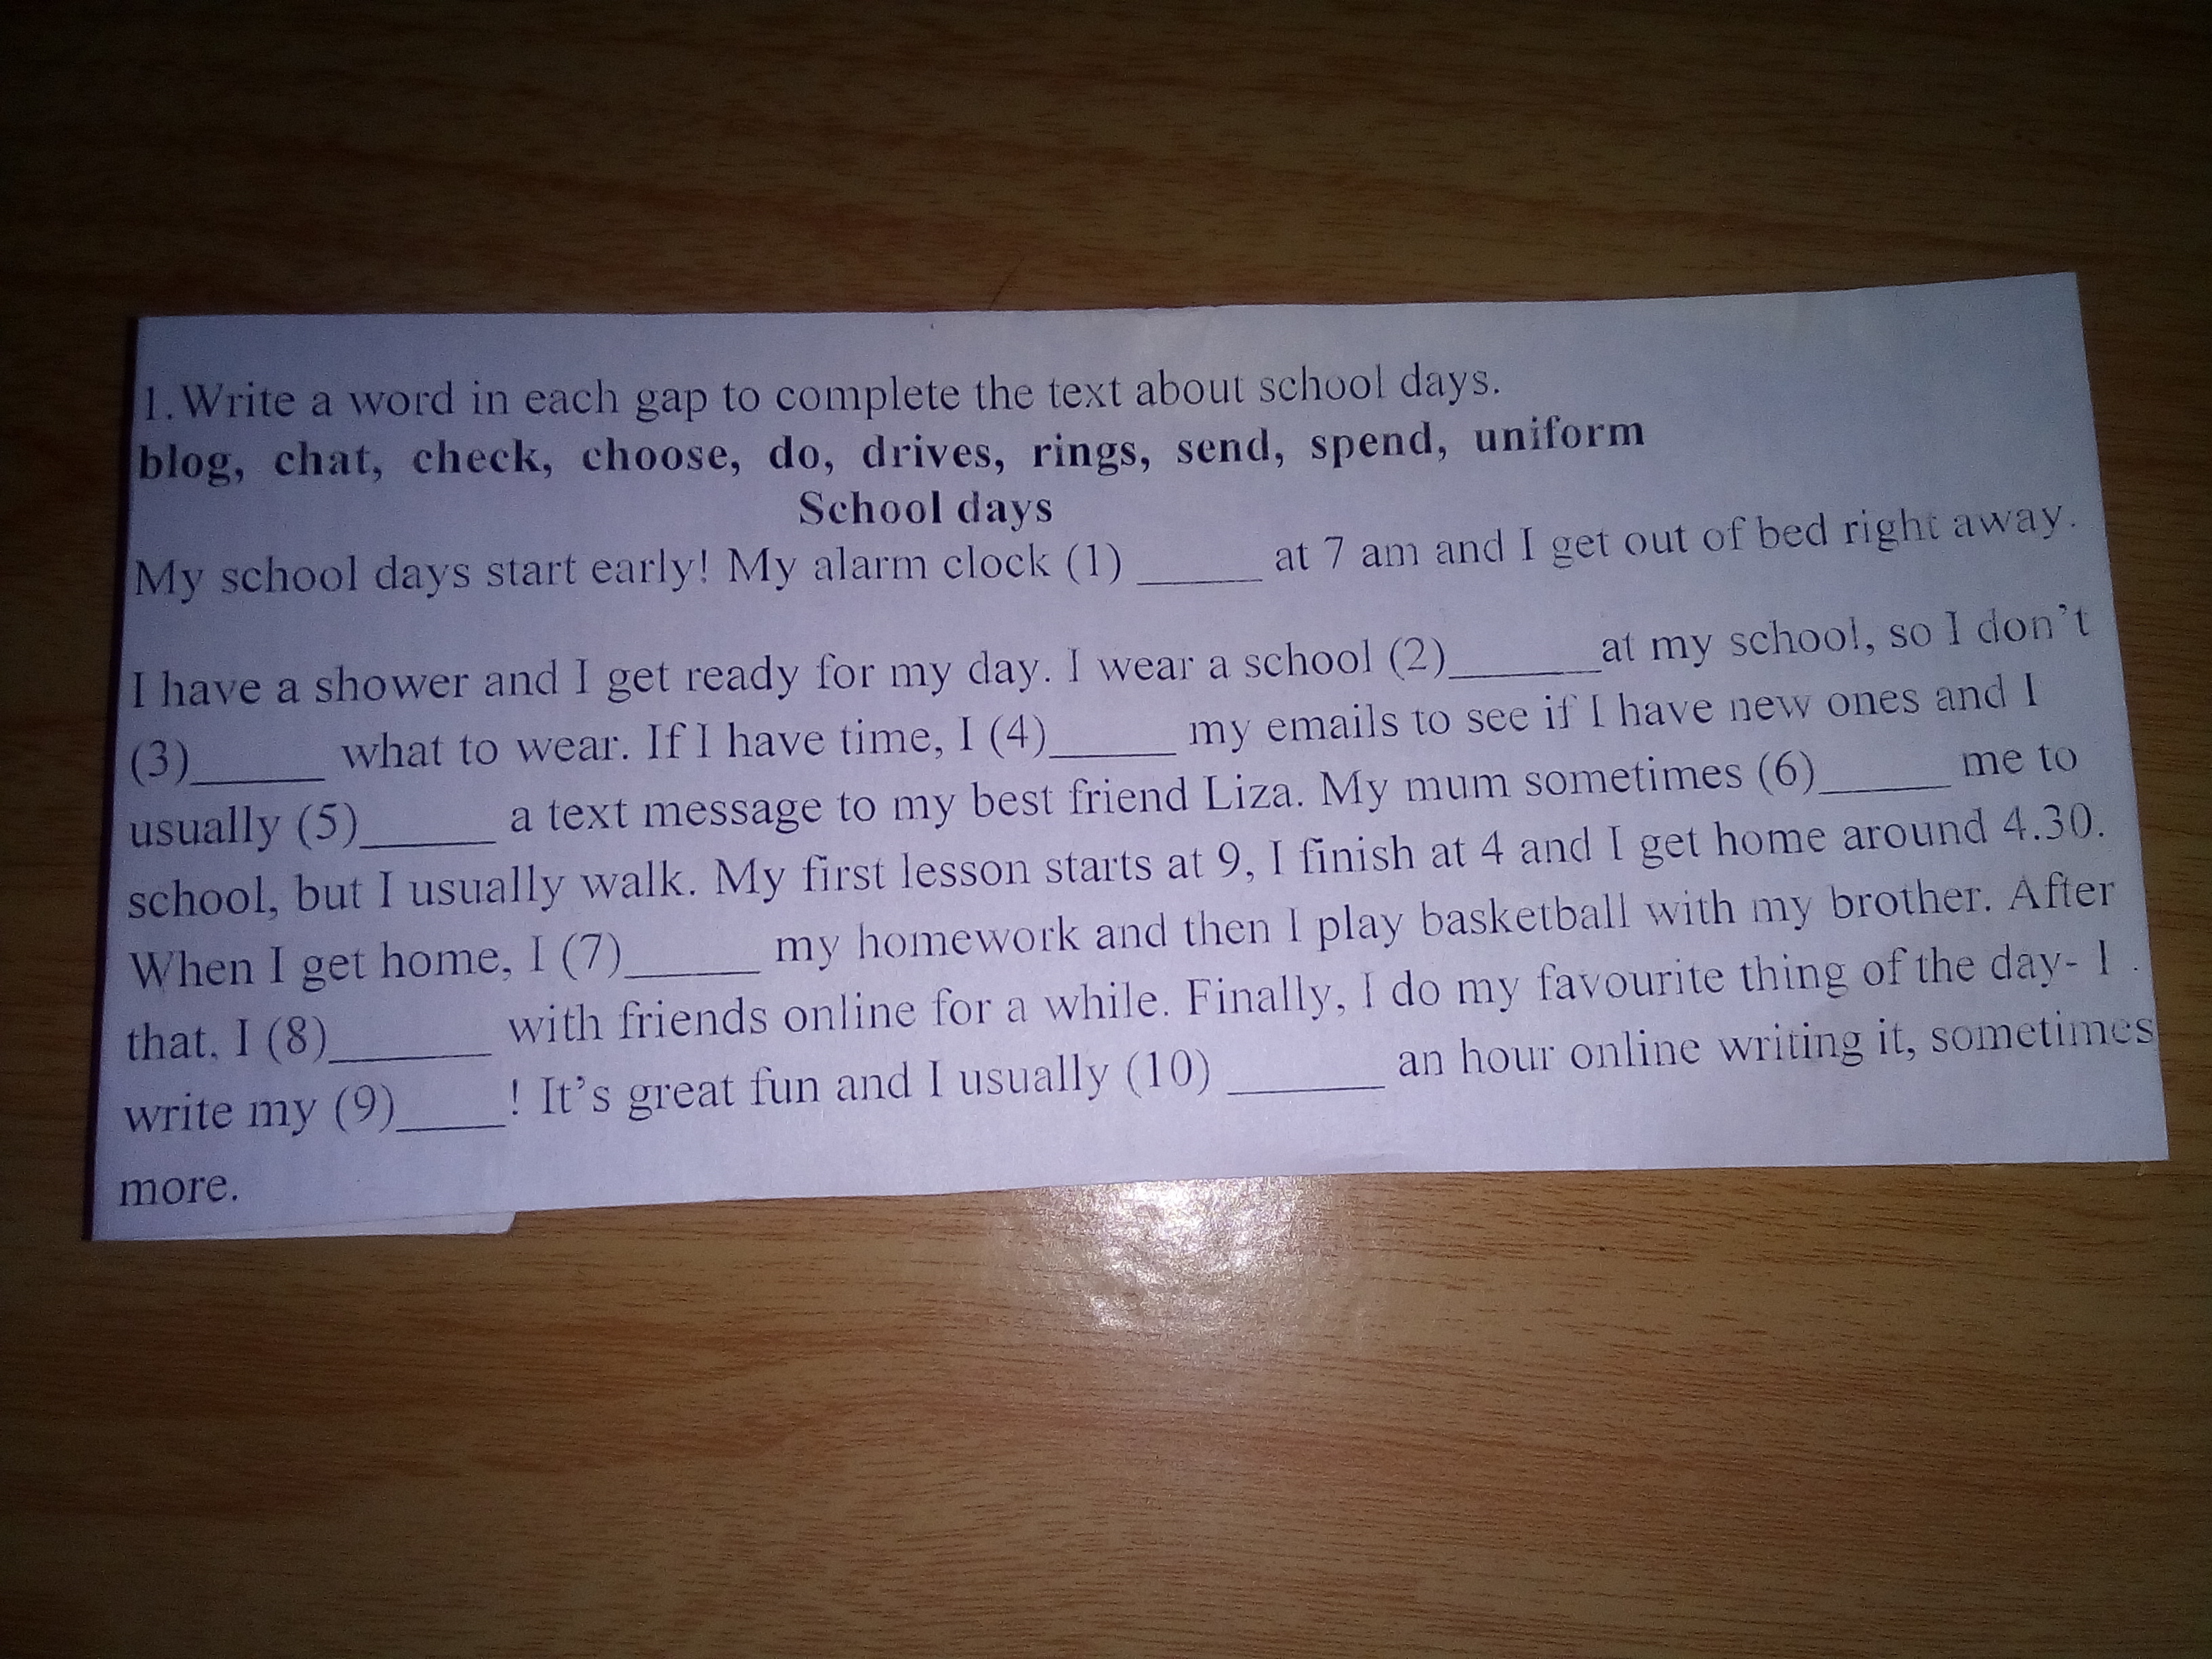 1.Write a word in each gap to complete the text about school days.
blog, chat, check, choose, do, drives, rings, send, spend, uniform
School days
My school days start early! My alarm clock (1) _____ at 7 am and I get out of bed right away.
I have a shower and I get ready for my day. I wear a school (2)______at my school, so I don't
(3)_____ what to wear. If I have time, I (4)_____ my emails to see if I have new ones and I
usually (5)_____ a text message to my best friend Liza. My mum sometimes (6)_____ me to
school, but I usually walk. My first lesson starts at 9, I finish at 4 and I get home around 4.30.
When I get home, I (7)_____ my homework and then I play basketball with my brother. After
that, I (8)______ with friends online for a while. Finally, I do my favourite thing of the day- I
write my (9)____! It's great fun and I usually (10) ______ an hour online writing it, sometimes
more.